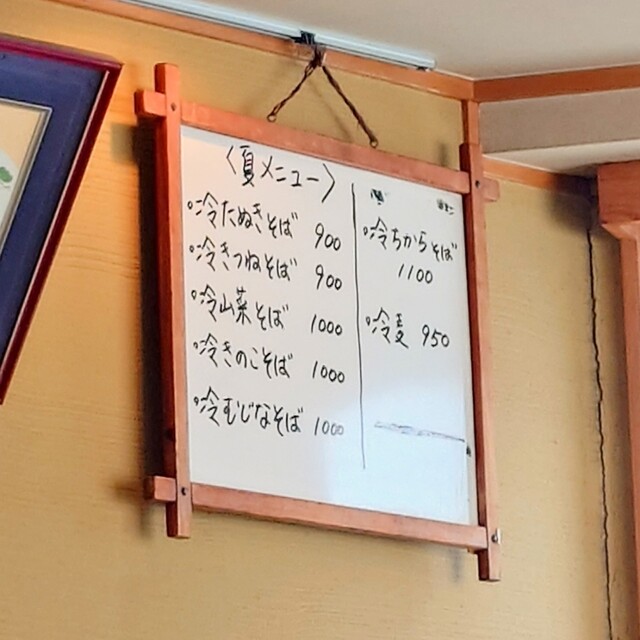 〈夏メニュー〉
冷たぬきそば 900
冷きつねそば 900
冷山菜そば 1000
冷きのこそば 1000
冷むじなそば 1000
冷ちからそば
1100
冷麦 950